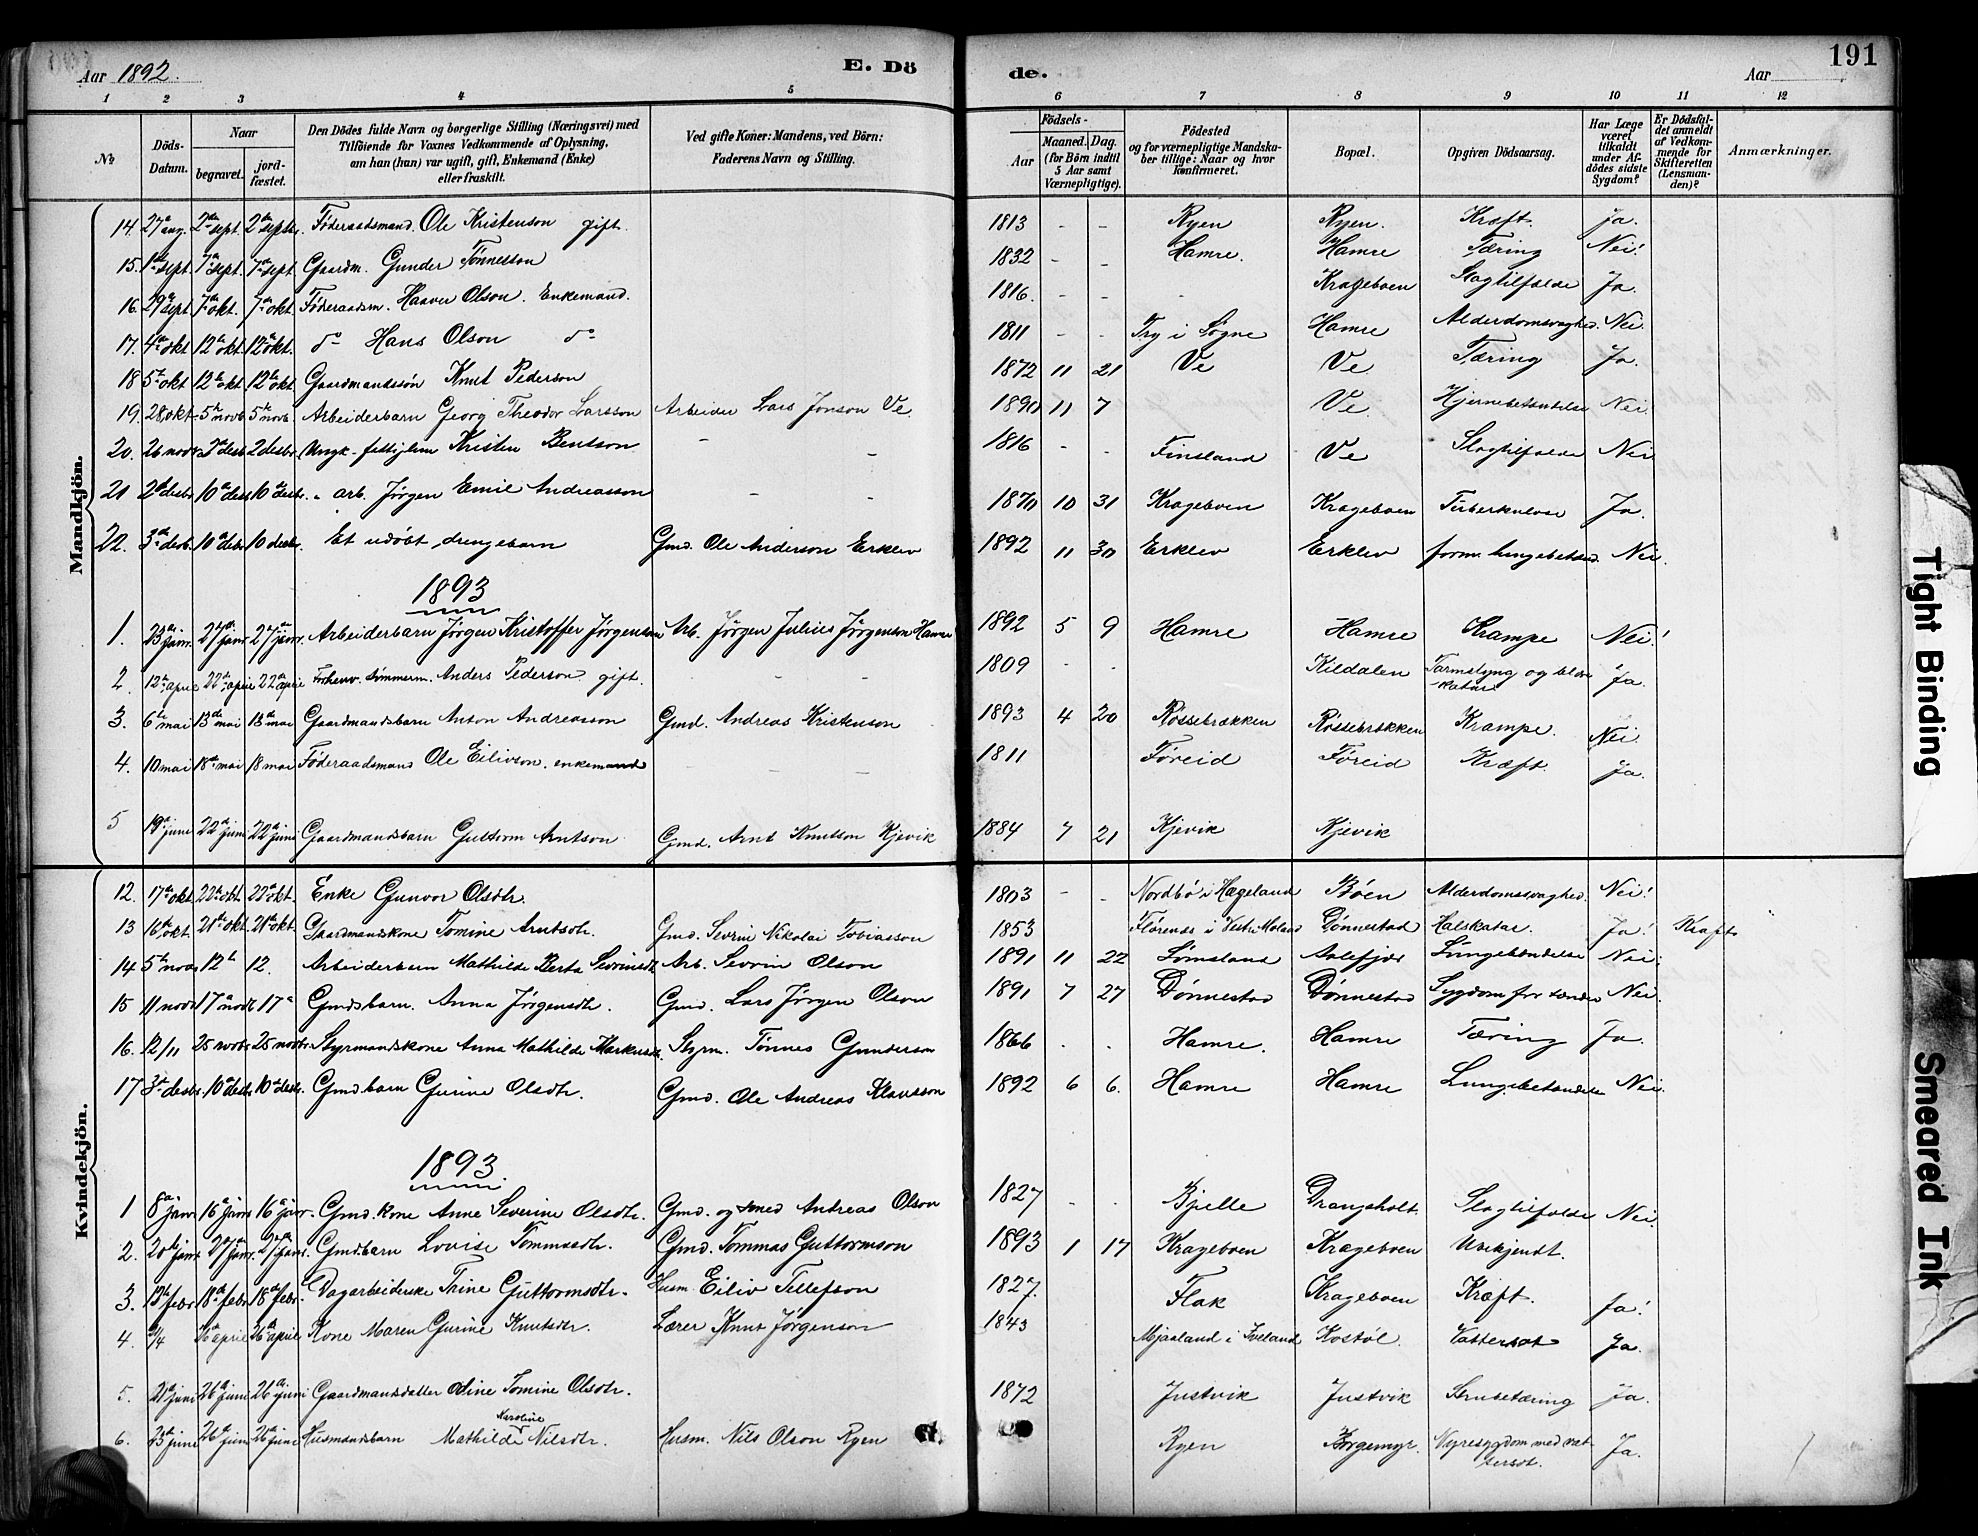 Aar 1892.
E. Dö
de.
191
Aar
1 2 3 4 5 6 7 8 9 10 11 12
No
Döds-Datum.
Naar
begravet.
jord-fæstet.
Den Dödes fulde Navn og borgerlige Stilling (Næringsvei) med
Tilföiende for Voxnes Vedkommende af Oplysning,
om han (hun) var ugift, gift, Enkemand (Enke)
eller fraskilt.
Ved gifte Koner: Mandens, ved Börn:
Faderens Navn og Stilling.
Födsels-
Aar
Maaned. Dag.
(for Börn indtil
5 Aar samt
Værnepligtige).
Födested
og for værnepligtige Mandska-
ber tillige: Naar og hvor
konfirmeret.
Bopæl.
Opgiven Dödsaarsag.
Har Læge
været
tilkaldt
under Af-
dödes sidste
Sygdom?
Er Dödsfal-
det anmeldt
af Vedkom-
mende for
Skifteretten
(Lensman-
den)?
Anmærkninger.
Mandkjön.
14. 27 aug. 2 sept. 2 septbr. Føderaadsmand Ole Kristenson gift. 1813 - - Ryen Ryen. Kræft. Ja.
15. 1 sept. 7 sept. 7 sept. Gaardm. Gunder Tønneson 1832 - - Hamre. Hamre Tæring Nei!
16. 29 sept. 7 okt. 7 okt. Føderaadsm. Haaver Olson. Enkemand. 1816. - - - Krageboen Slagtilfælde Ja.
17. 4 okt. 12 okt. 12 okt. do Hans Olson do 1811 - - Try i Søgne Hamre Alderdomsvaghed. Nei.
18 5 okt 12 okt. 12 okt. Gaardmandssøn Knut Pederson 1872 11 21 Ve Ve Tæring Ja.
19. 28 okt. 5 novb. 5 novb. Arbeiderbarn Georg Theodor Larsson Arbeider Lars Jonson Ve 1890 11 7 Ve. Hjernebetændelse Nei.
20. 26 novbr. 2 desb. 2 desbr. Ungk. fattiglem Kristen Bentson - - 1816 - - Finsland Ve Slagtilfælde Nei
21 2 desbr. 10 desb. 10 desbr. " arb. Jørgen Emil Andreasson - - 1870 10 31 Krageboen Krageboen Tuberkulose Ja.
22. 3 desb. 10 desbr. 10 desbr. Et udøbt drengebarn Gmd. Ole Anderson Erklev 1892 11 30 Erklev Erklev form. lungebetænd. Nei.
1893
1. 23 janr. 27 janr 27 janr. Arbeiderbarn Jørgen Kristoffer Jørgenson Arb. Jørgen Julius Jørgenson Hamre 1892 5 9 Hamre Hamre Krampe Nei!
2. 12 april 22 april 22 april Forhenv. tømmerm. Anders Pederson gift. - - - 1809 - - Kildalen Tarmslyng og blære
-katar Ja.
3. 6 mai 13 mai 13 mai Gaardmandsbarn Anton Andreasson Gmd. Andreas Kristenson 1893 4 20 Røssebrækken Røssebrækken Krampe. Nei.
4. 10 mai 18 mai 18 mai Føderaadsmand Ole Eilivson. enkemand - - - 1811 Føreid Føreid Kræft. Ja.
5 19 juni 22 juni 22 juni Gaardmandsbarn Guttorm Arntson Gmd. Arnt Knutson Kjevik 1884 7 21 Kjevik Kjevik
Kvindekjön.
12. 17 okt. 22 okt. 22 okt. Enke Gunvor Olsdtr. 1803 - - Nordbø i Hægeland Bøen Alderdomssvaghed. Nei!
13 16 okt. 21 okt. 21 okt. Gaardmandskone Tomine Arntsdtr. Gmd. Sevrin Nikolai Tobiasson 1853 - Florenæs i Vestre Moland Dønnestad Halskatar. Ja! Kræft.
14 5 nov. 12 12. Arbeiderbarn Mathilde Berta Sevrinsdt. Arb. Sevrin Olson 1891 11 22 Lømsland Aalefjær Lungebetændelse Nei.
15 11 novb 17 novb 17 Gmdsbarn. Anna Jørgensdtr. Gmd. Lars Jørgen Olson 1891 7 27 Dønnestad Dønnestad Sygdom for tænder Nei.
16. 12/11 25 novbr 25 novbr. Styrmandskone Anna Mathilde Markusdt. Styrm. Tønnes Gunderson 1866 - - Hamre. Hamre Tæring Ja.
17 3 desbr. 10 desb. 10 desbr. Gmd. barn Gurine Olsdtr. Gmd. Ole Andreas Klausson 1892 6 6. Hamre Hamre Lungebetændelse Nei.
1893
1 8 janr 16 janr 16 janr. Gmd. kone Anne Severine Olsdtr. Gmd. og smed Andreas Olson 1827 - - Bjelle Drangsholt Slagtilfælde Nei.
2. 20 janr. 27 janr. 27 janr. Gmd. barn Lovise Tommasdtr. Gmd. Tommas Guttormson 1893 1 17 Krageboen Krageboen Ubekjendt.
3. 13 febr. 18 febr 18 febr. Dagarbeiderske Trine Guttormsdtr. Husm. Eiliv Tellefson 1827. Flak Krageboen Kræft. Ja!
4. 26 april 26 april Kone Maren Gurine Knutsdtr. Lærer Knut Jørgenson 1843 Mjaaland i Iveland Kostøl. Vattersot Ja.
5. 21 juni 26 juni 26 juni Gaardmandsdatter Odine Tomine Olsdtr. 1872 Justvik Justvik Strubetæring Ja.
6. 23 juni 26 juni 26 juni Husmandsbarn Mathilde Karoline Nilsdtr. Husm. Nils Olson Ryen Ryen Borgemyr. Nyresygdom med vat-
tersot. Ja.
Tight Binding
Smeared Ink